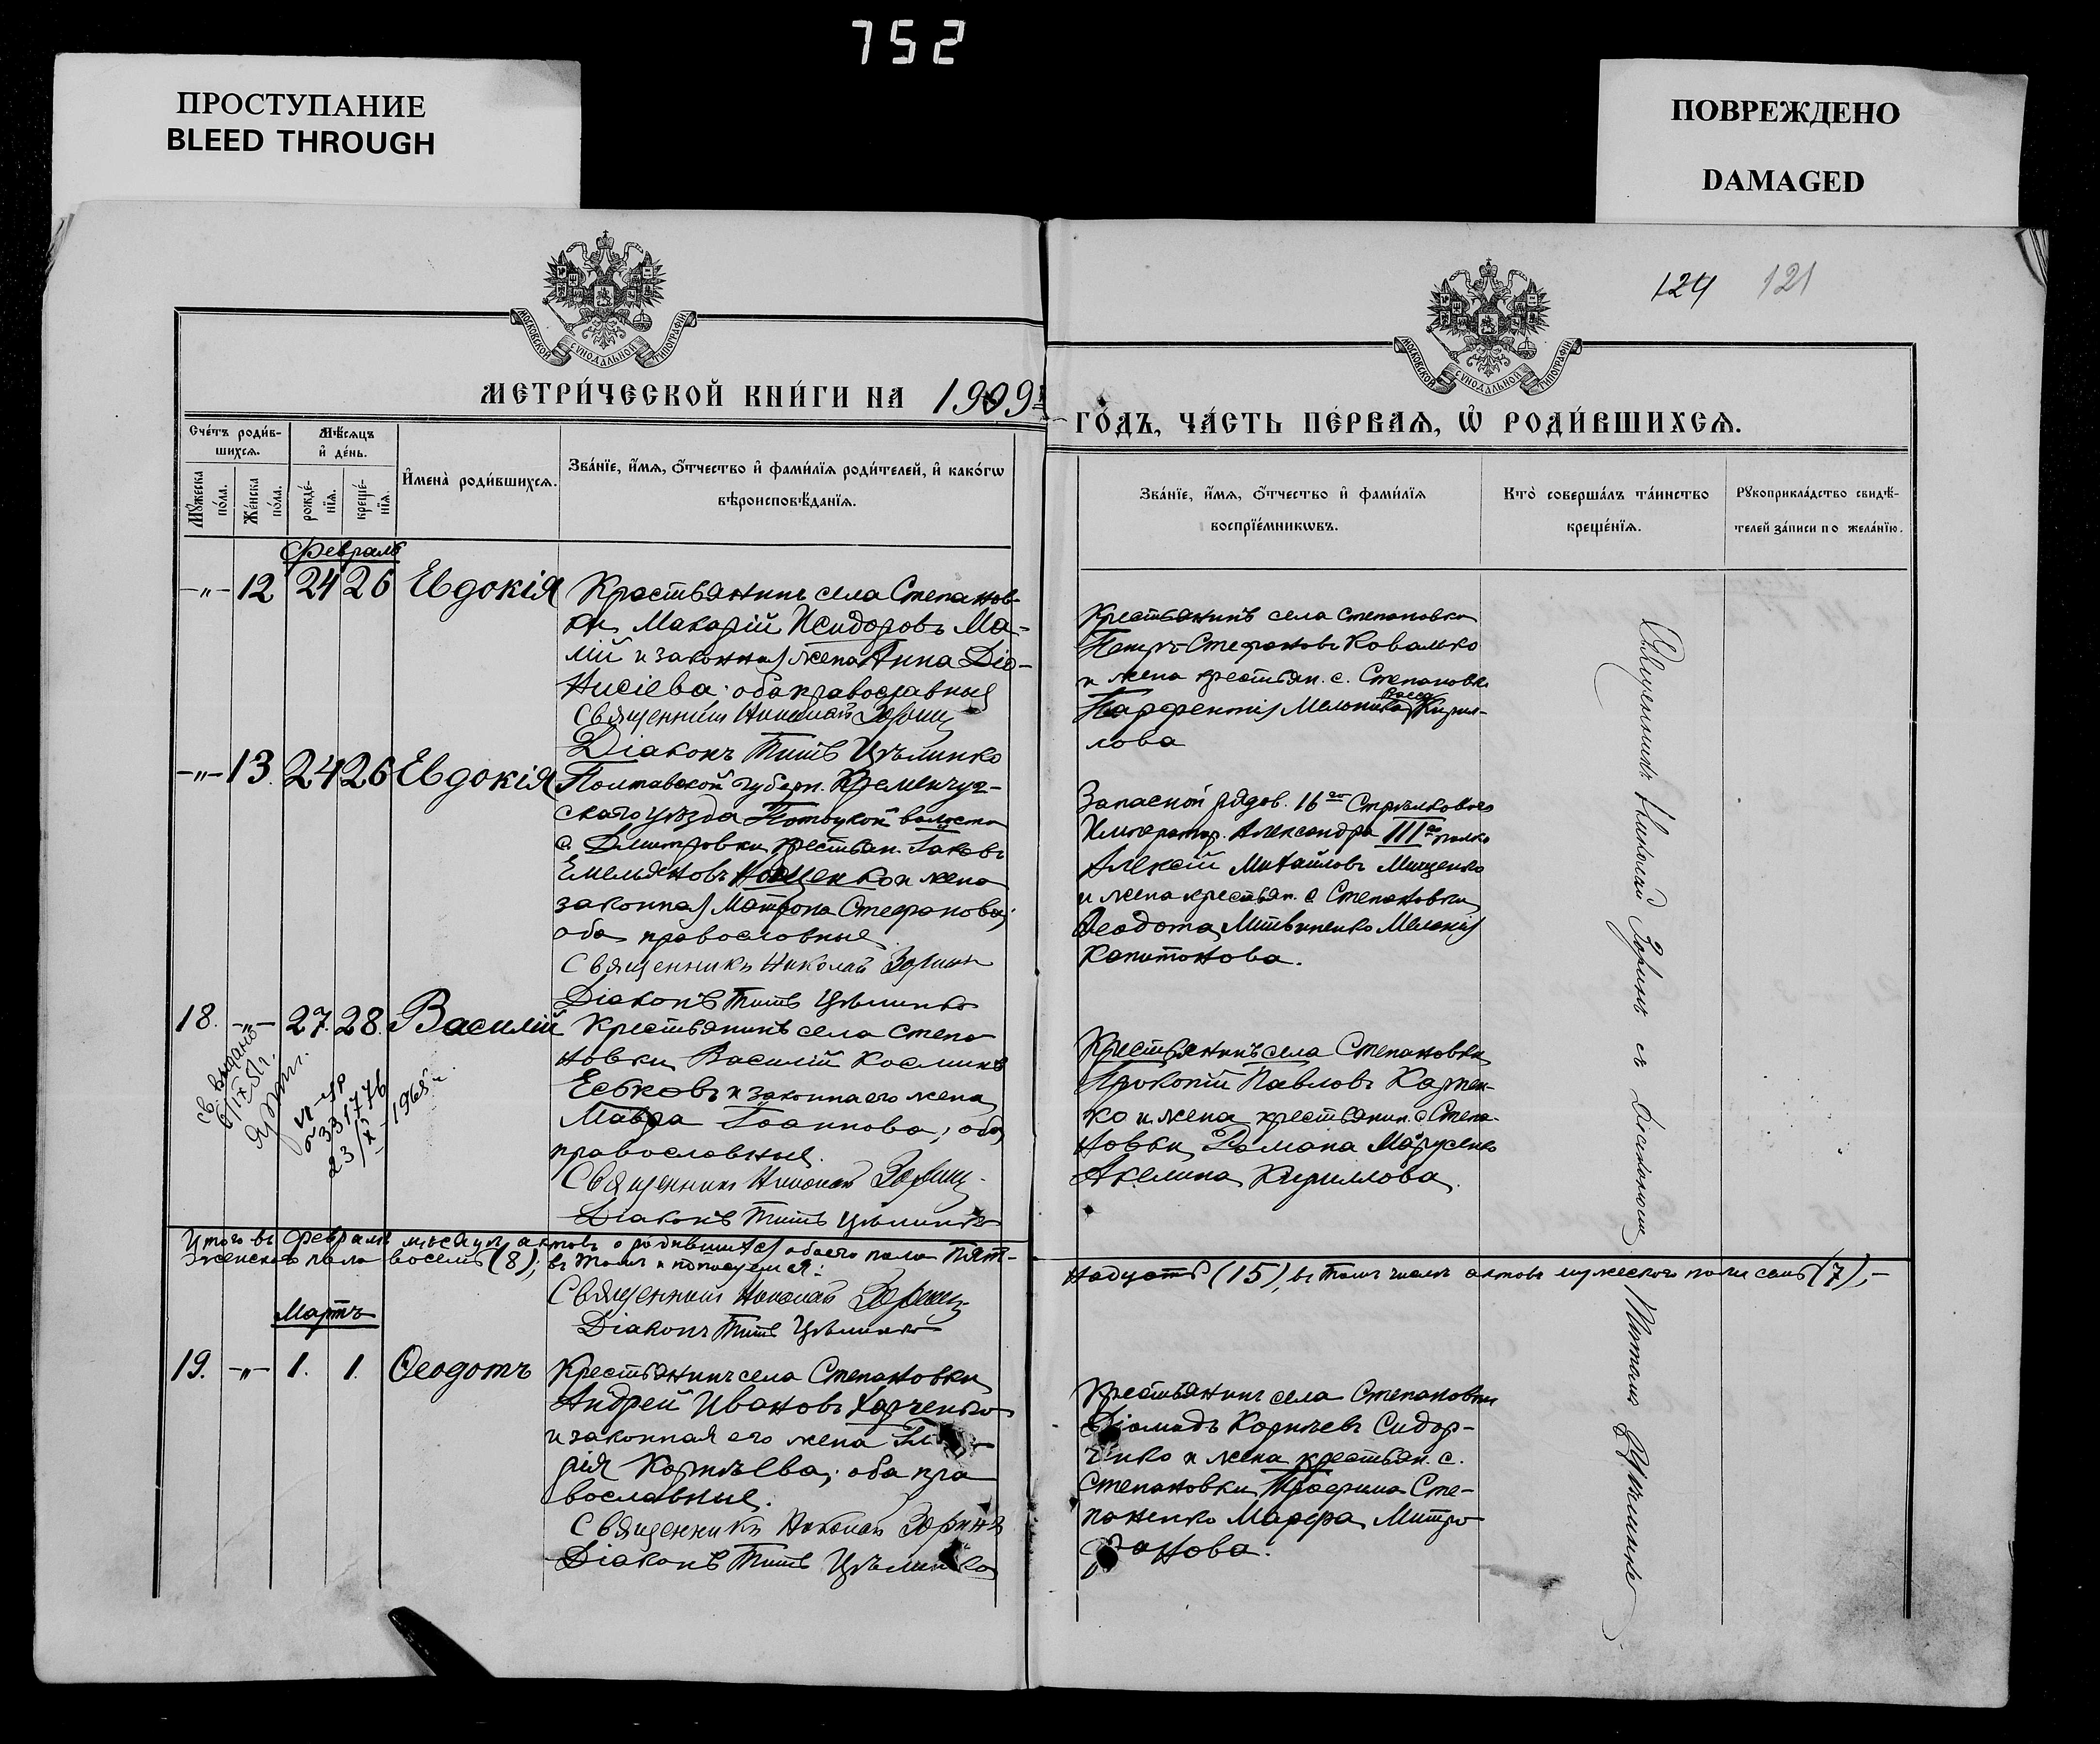 752
ПРОСТУПАНИЕ
BLEED THROUGH
ПОВРЕЖДЕНО
DAMAGED
124 121
МОСКОВСКОЙ СѴНОДАЛЬНОЙ ТИПОГРАФІИ
МОСКОВСКОЙ СѴНОДАЛЬНОЙ ТИПОГРАФІИ
МЕТРИ́ЧЕСКОЙ КНИ́ГИ НА 1909
ГО́ДЪ, ЧА́СТЬ ПЕ́РВАЯ, Ѡ҆ РОДИ́ВШИХСЯ.
Сче́тъ роди́в-
шихся.
Мꙋжеска
по́ла.
Же́нска
по́ла.
Мѣ́сяцъ
и҆ де́нь.
рожде́-
нїя.
креще́-
нїя.
И҆мена̀ роди́вшихся.
Зва́нїе, и҆́мя, ѻ҆́тчество и҆ фами́лїя роди́телей, и҆ како́гѡ
вѣроисповѣ́данїя.
Зва́нїе, и҆́мя, ѻ҆́тчество и҆ фами́лїя
воспрїе́мникѡвъ.
Кто̀ соверша́лъ та́инство
креще́нїя.
Рꙋкоприкла́дство свидѣ́-
телей за́писи по жела́нїю.
Февраль
-"- 12 24 26 Евдокія
Крестьянинъ села Степанов-
ки Макарій Исидоровъ Ма-
лій и законная жена Анна Діо-
нисіева; оба православные
Священникъ Николай Зоринъ
Діаконъ Титъ Цѣлинко
Крестьянинъ села Степановки
Петръ Стефановъ Ковалько
и жена крестьян. с. Степановки
Парфентія Мельника Васса Кирил-
лова
-"- 13. 24 26 Евдокія
Полтавской губерн. Кременчуг-
скаго уѣзда Потоцкой волости
с. Дмитровки крестьян. Іаковъ
Емельяновъ и жена
законная Матрона Стефанова;
оба православные
Священникъ Николай Зоринъ
Діаконъ Титъ Цѣлинко
Запасной рядов. 16го Стрѣлковаго
Император. Александра IIIго полка
Алексій Михайловъ Мищенко
и жена крестьян. с Степановки
Ѳеодота Литвиненко Меланія
Капитонова.
18. -"- 27. 28. Василій
Крестьянинъ села Степа
новки Василій Косминъ
Еськовъ и законная его жена
Мавра Іоаннова; оба
православные.
Священникъ Николай Зоринъ
Діаконъ Титъ Цѣлинко
1968
Крестьянинъ села Степановки
Прокопій Павловъ Карпен-
ко и жена крестьянин. с Степа-
новки Романа Марусенко
Акелина Кириллова.
Итого въ Февралѣ мѣсяцѣ актовъ о родившихся обоего пола Пят-
надцать (15), въ томъ числѣ актовъ мужескаго пола семь (7),-
женскаго пола восемь (8);
Священникъ Николай Зоринъ
Діаконъ Титъ Цѣлинко
Мартъ
19. -"- 1. 1. Ѳеодотъ
Крестьянинъ села Степановки
Андрей Ивановъ Харченко
и законная его жена
рія Корнѣева; оба пра
вославные.
Священникъ Николай Зоринъ
Діаконъ Титъ Цѣлинко
Крестьянинъ села Степановки
Діомидъ Корнѣевъ Сидор-
ченко и жена крестьян. с.
Степановки Трофима Сте-
паненко Марфа Митро
фанова.
Священникъ Николай Зоринъ съ Діакономъ
Титомъ Цѣлинко